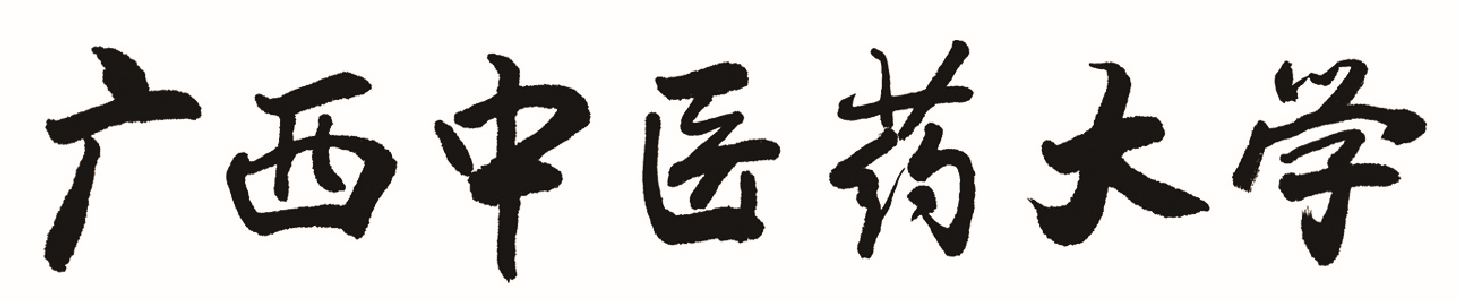 广西中医药大学